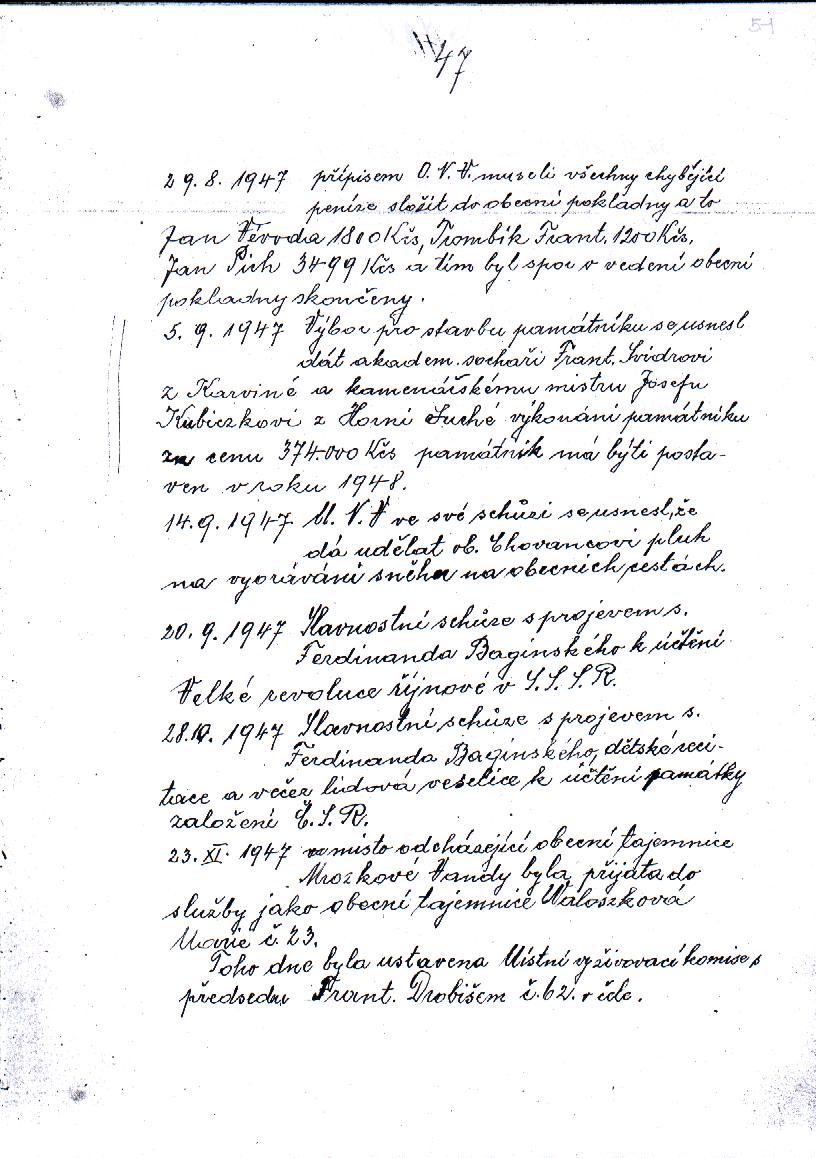 51
47
29.8.1947 přípisem O.N.V. museli všechny chybějící
peníze složit do obecní pokladny a to
Jan Věvoda 1800 Kčs, Trombik Frant. 1200 Kčs,
Jan Pich 3499 Kčs a tím byl spor o vedení obecní
pokladny skončeny.
5.9.1947 Výbor pro stavbu památníku se usnesl
dát akadem. sochaři Frant. Svidrovi
z Karviné a kamenářskému mistru Josefu
Kubiczkovi z Horní Suché výkonání památníku
za cenu 374.000 Kčs památník má býti posta-
ven v roku 1948.
14.9.1947 M.N.V ve své schůzi se usnesl, že
dá udělat ob. Chovancovi pluh
na vyorávání sněhu na obecních cestách.
20.9.1947 Slavnostní schůze s projevem s.
Ferdinanda Bagińského k účtění
Velké revoluce říjnové v S.S.S.R.
28.10.1947 Slavnostní schůze s projevem s.
Ferdinanda Bagińského, dětské reci-
tace a večer lidová veselice k účtění památky
založení Č.S.R.
23.XI.1947 místo odcházející obecní tajemnice
Mrozkové Vandy byla přijata do
služby jako obecní tajemnice Waloszková
Marie č.23.
Toho dne byla ustavena Místní vyživovací komise s
předsedu Frant. Drobišem č.62. v čele.